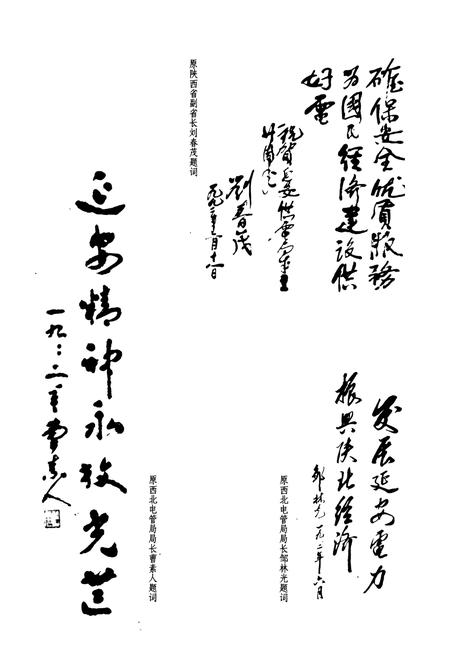 确保安全优质服务
为国民经济建设供
好电
祝贺延安供电局建局
廿周年
刘春茂
一九九二年六月十一日
原陕西省副省长刘春茂题词
发展延安电力
振兴陕北经济
邹林光 一九九二年六月
原西北电管局局长邹林光题词
延安精神永放光芒
一九九二年 曹素人
原西北电管局局长曹素人题词